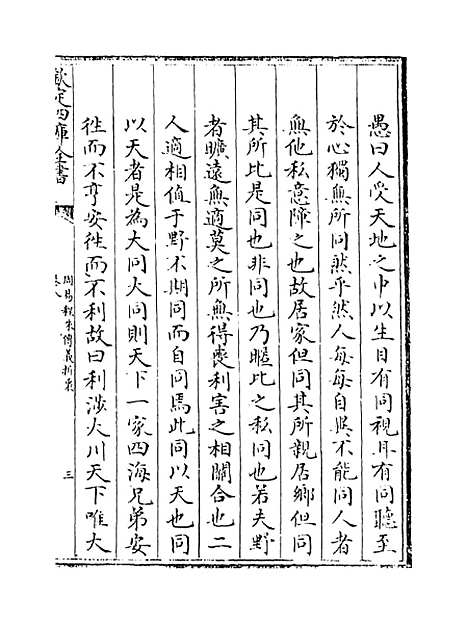 愚曰人受天地之中以生目有同視耳有同聽至
於心獨無所同然乎然人每每自異不能同人者
無他私意障之也故居家但同其所親居鄉但同
其所比是同也非同也乃暱比之私同也若夫野
者曠遠無適莫之所無得喪利害之相關合也二
人適相值于野不期同而自同焉此同以天也同
以天者是為大同大同則天下一家四海兄弟安
往而不亨安往而不利故曰利涉大川天下唯大
欽定四庫全書
周易程朱傳義折衷
卷八
三